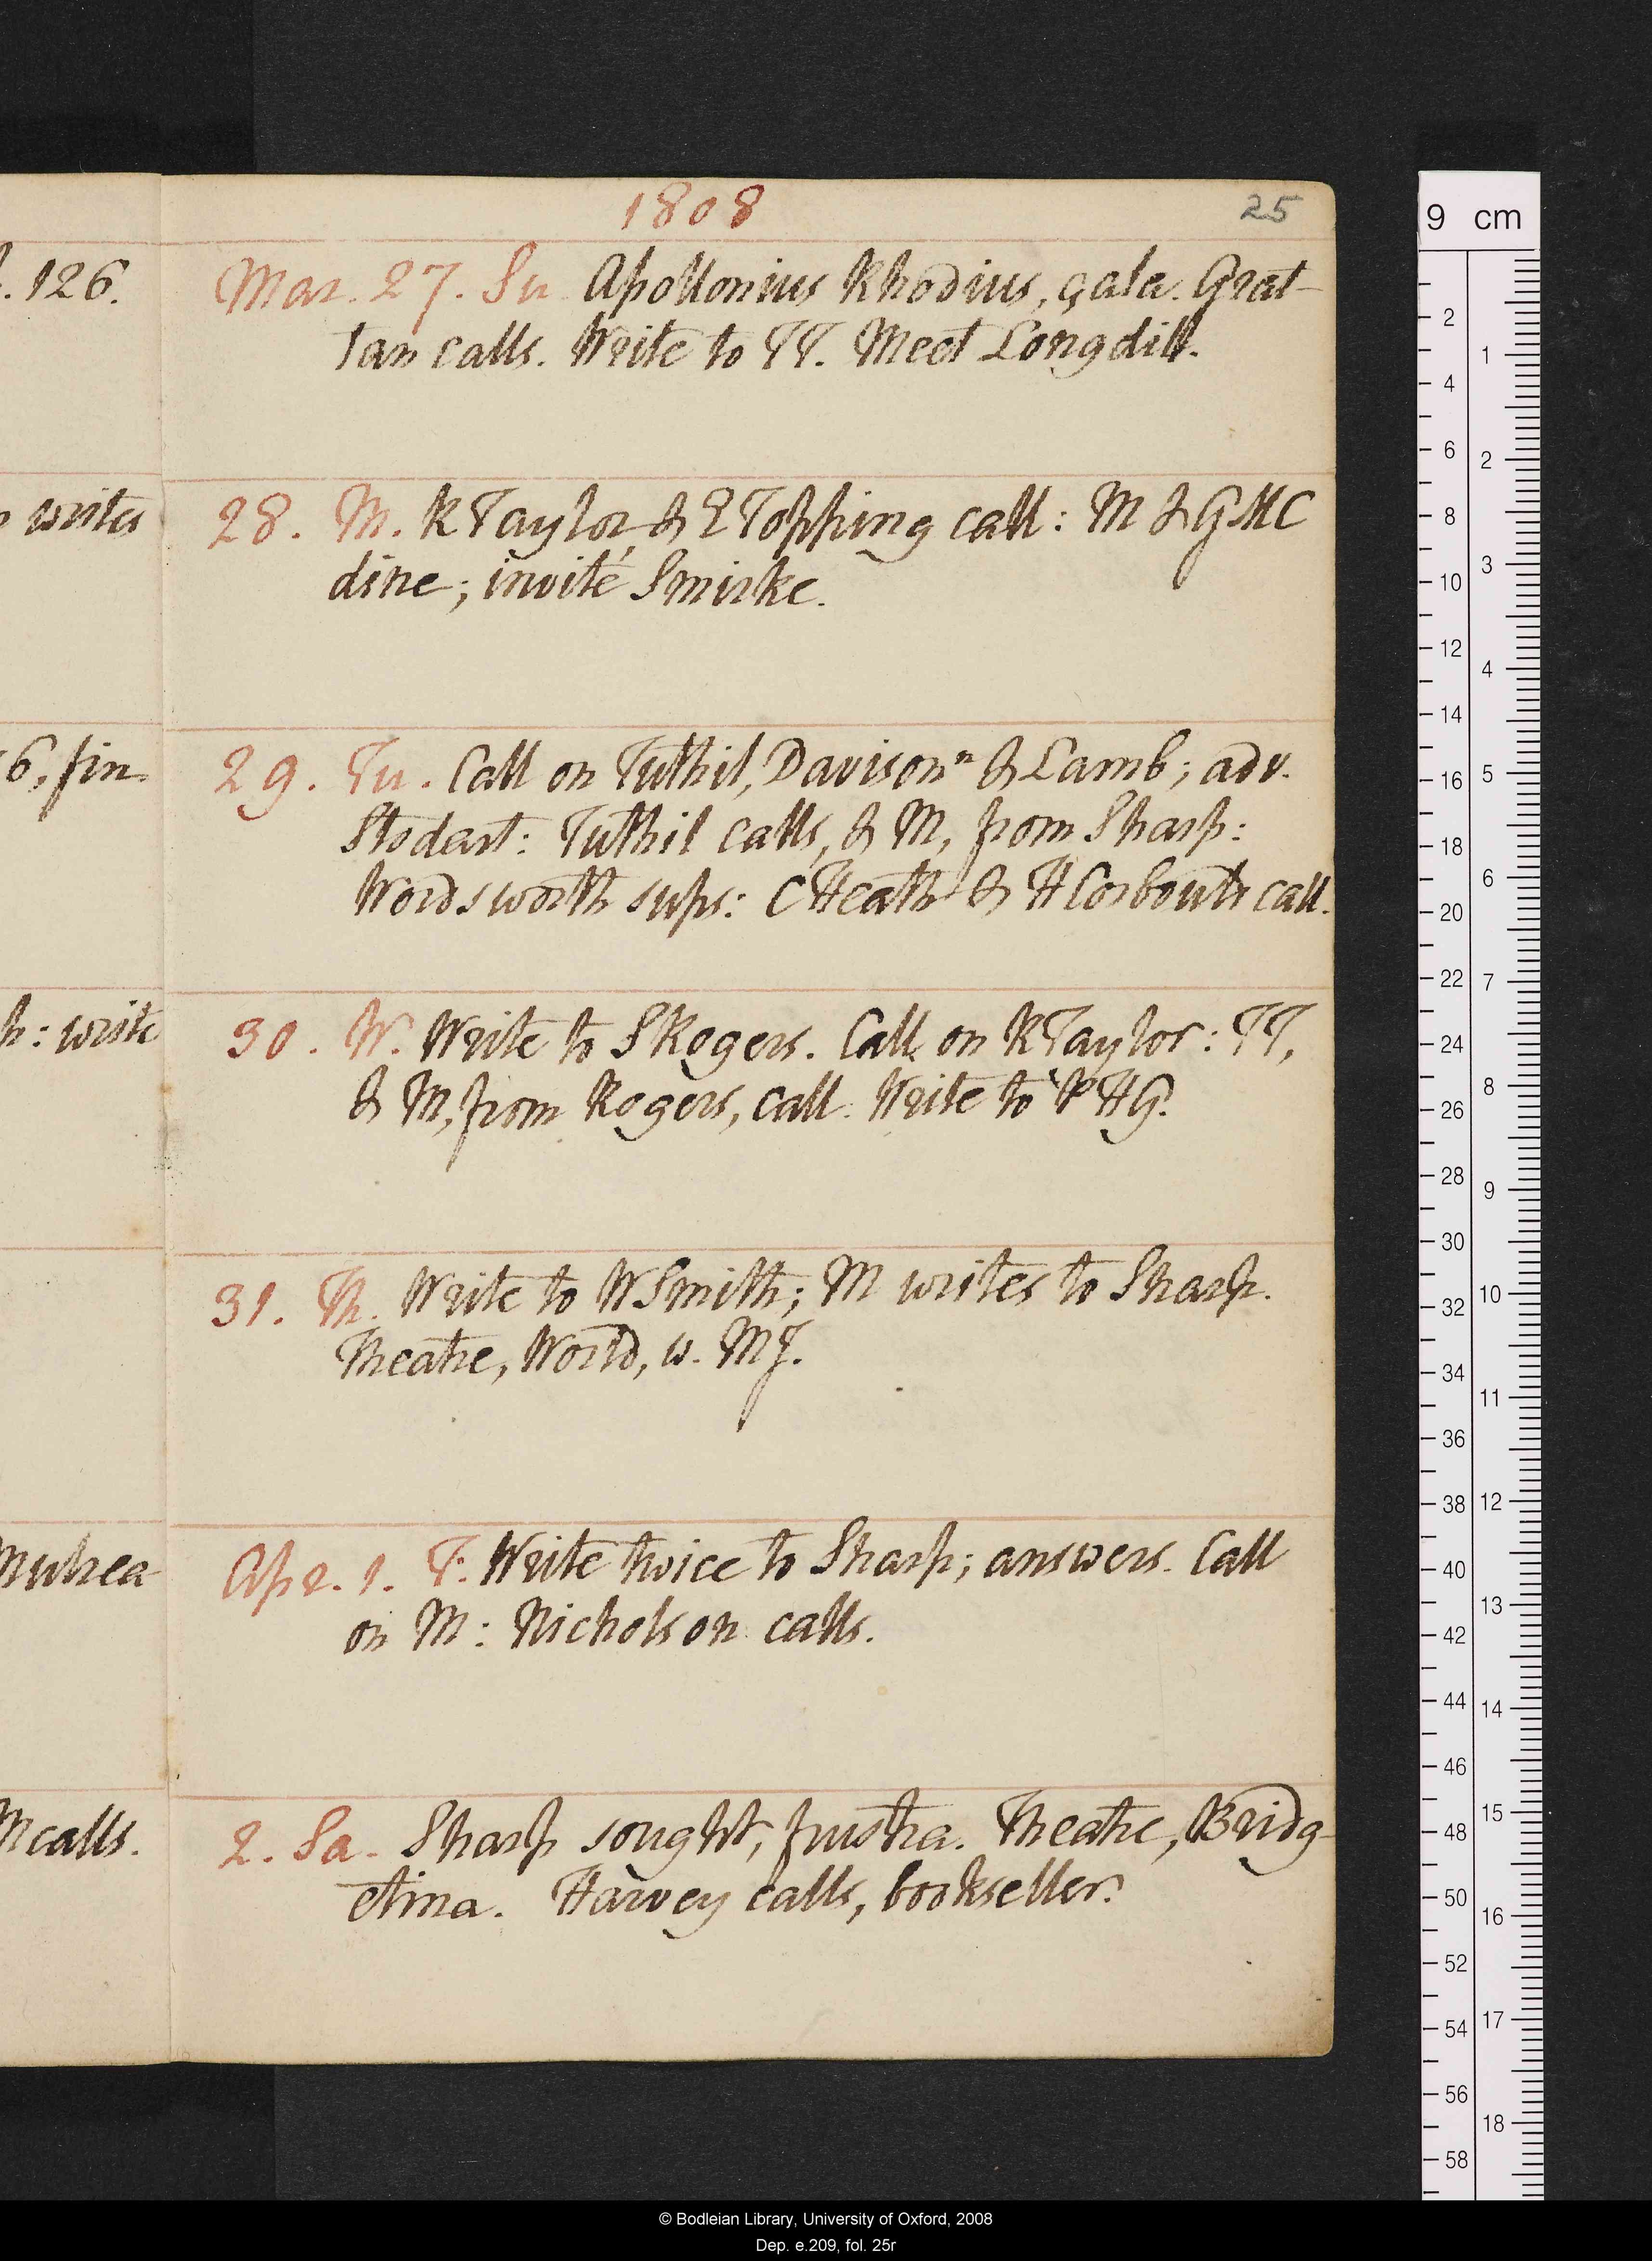 1808
25
. 126.
Mar. 27. Su Apollonius Rhodius, çala. Grat-
tan calls. Write to TT. Meet Longdill.
writes
28. M. R Taylor & E Topping call: M & G M C
dine; invité Smirke.
6, fin.
29. Tu. Call on Tuthil, Davison n & Lamb; adv.
Stodart: Tuthil calls, & M, from Sharp:
Wordsworth sups: C Heath & H Corbould call.
h: write
30. W. Write to S Rogers. Call on R Taylor: TT,
& M, from Rogers, call. Write to P H G.
31. Th. Write to W Smith; M writes to Sharp.
Theatre, World, w. MJ.
Apr. 1. F. Write twice to Sharp; answers. Call
on M: Nicholson calls.
M calls.
2. Sa. Sharp sought, frustra. Theatre, Bridg-
etina. Harvey calls, bookseller.
9 cm
2 4 6 8 10 12 14 16 18 20 22 24 26 28 30 32 34 36 38 40 42 44 46 48 50 52 54 56 58
1 2 3 4 5 6 7 8 9 10 11 12 13 14 15 16 17 18
© Bodleian Library, University of Oxford, 2008
Dep. e.209, fol. 25r